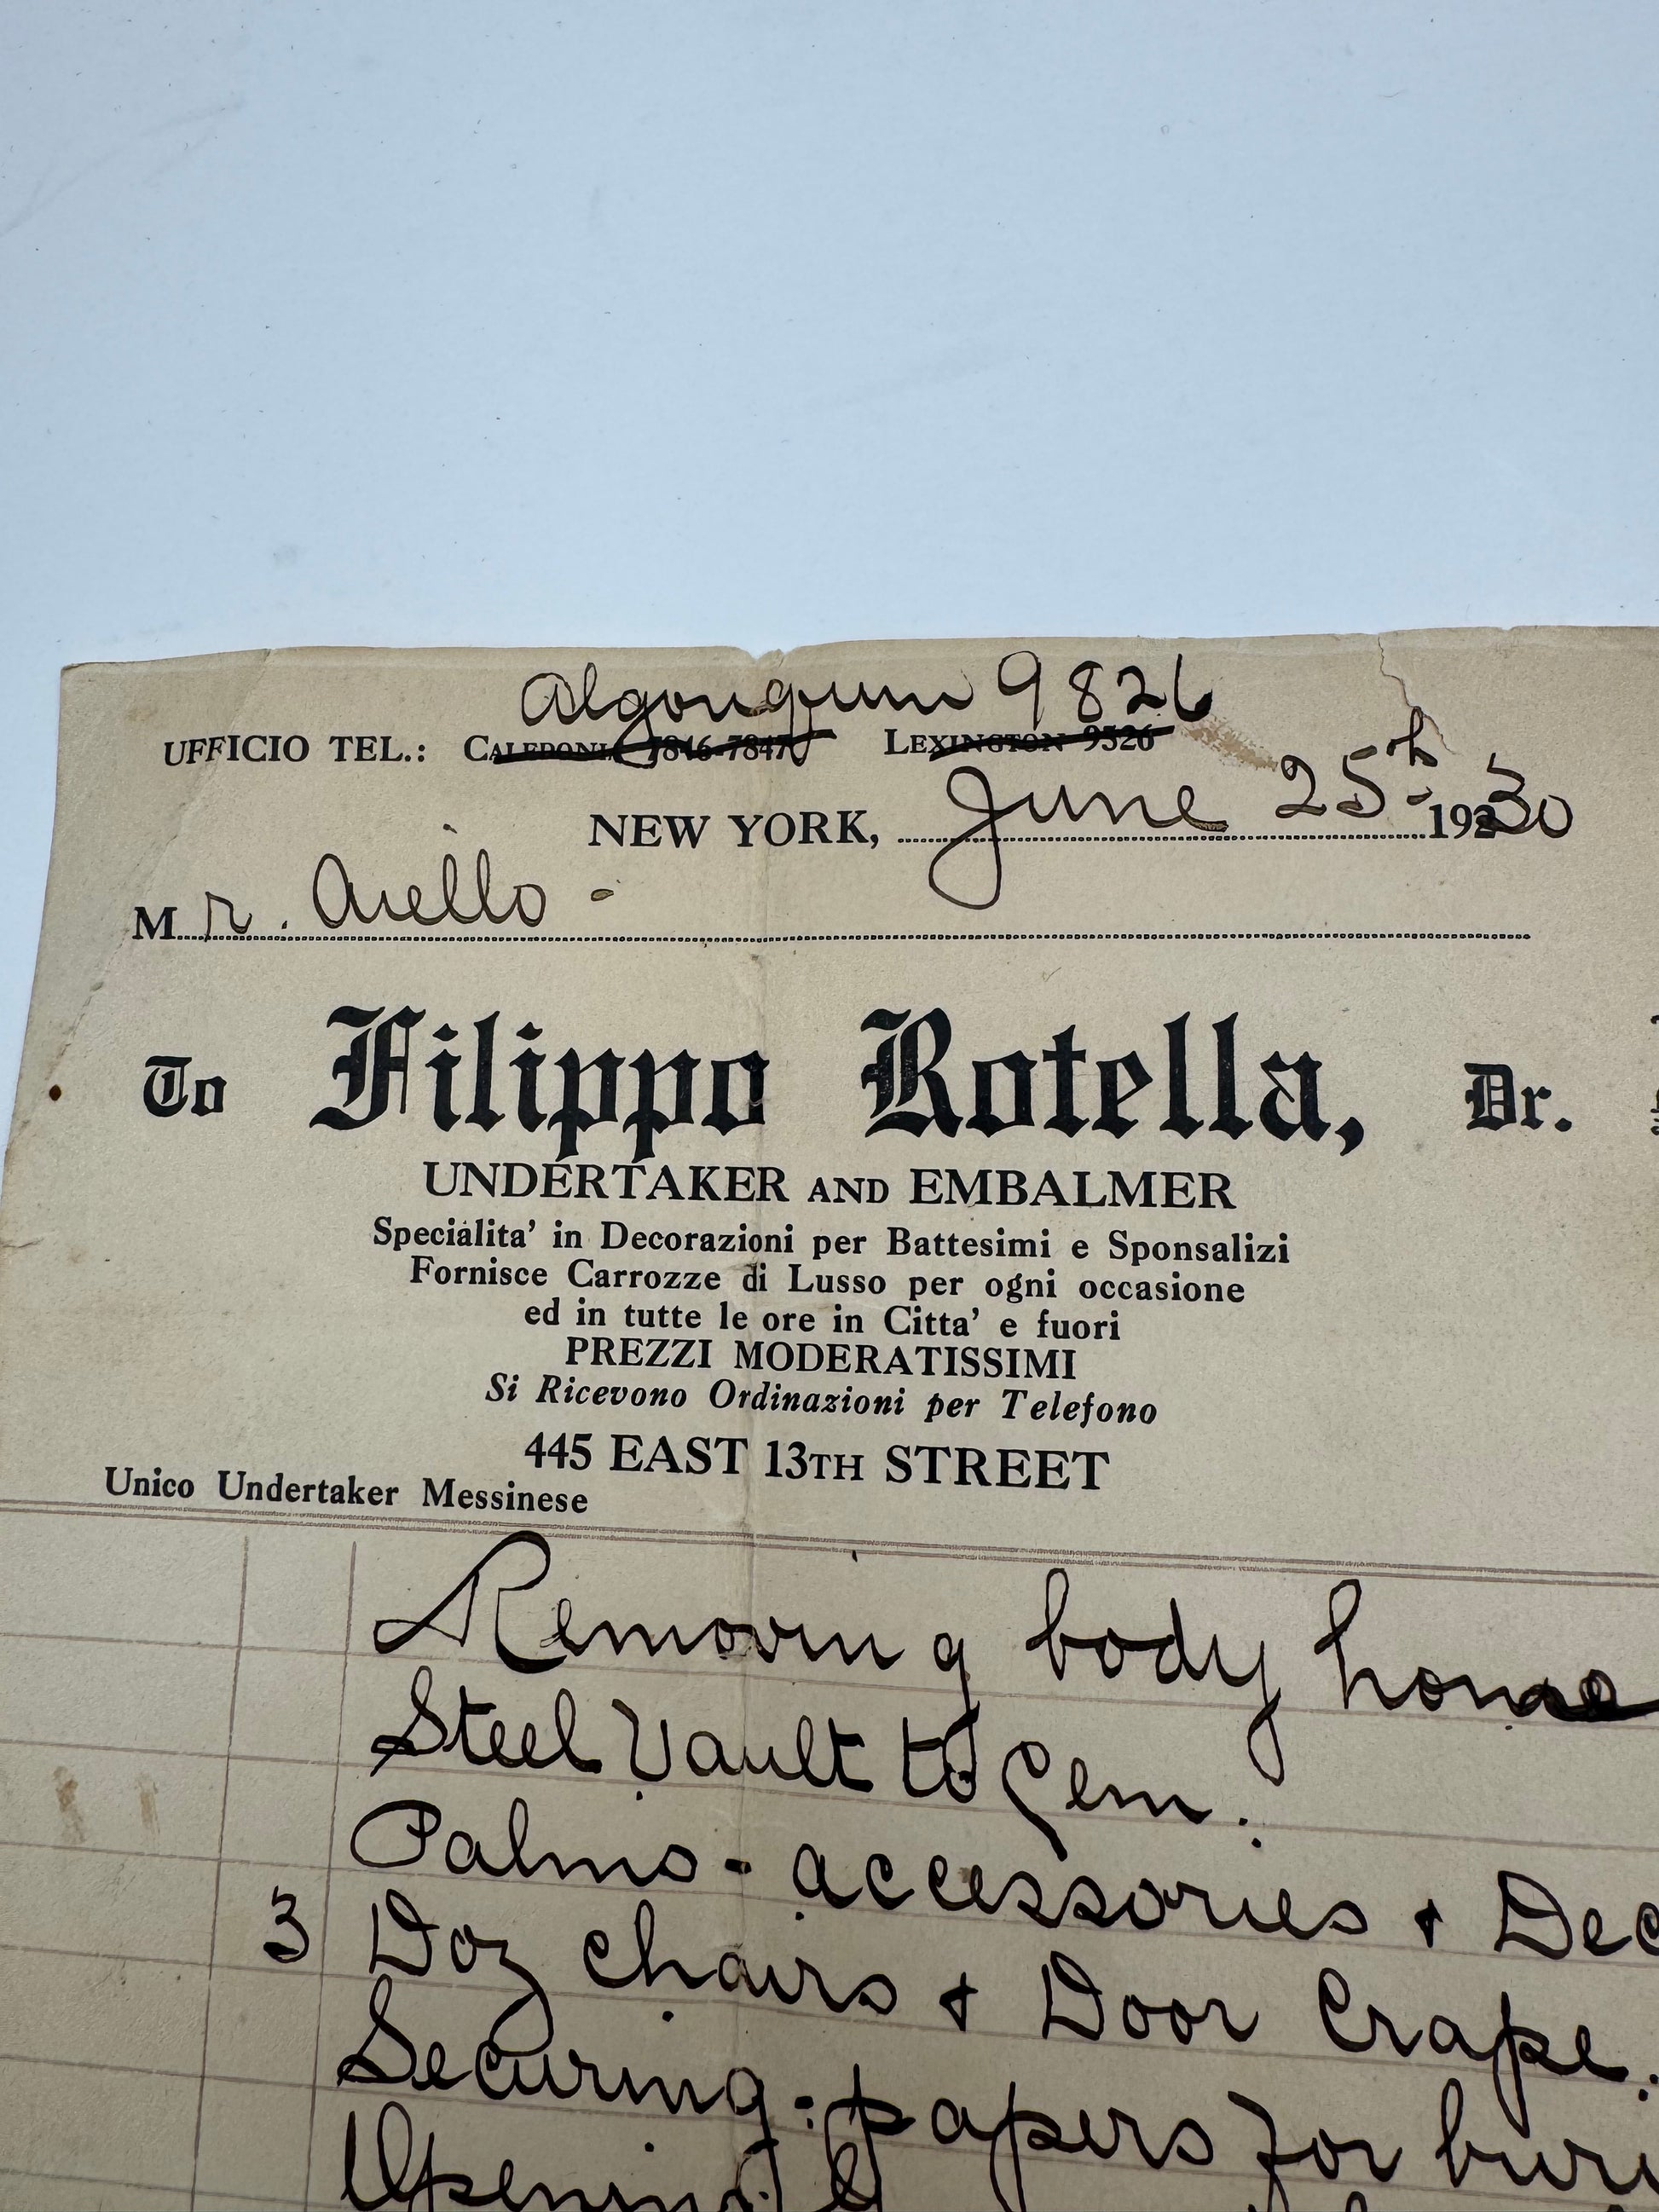 Algonquin 9826
UFFICIO TEL.: CALEDONIA 7846-7847 LEXINGTON 9526
NEW YORK, June 25th 1930
Mr. Aiello -
To Filippo Rotella, Dr.
UNDERTAKER AND EMBALMER
Specialita' in Decorazioni per Battesimi e Sponsalizi
Fornisce Carrozze di Lusso per ogni occasione
ed in tutte le ore in Citta' e fuori
PREZZI MODERATISSIMI
Si Ricevono Ordinazioni per Telefono
445 EAST 13TH STREET
Unico Undertaker Messinese
Removing body home
Steel Vault to Cem.
Palms - accessories + Dec
3 Doz chairs + Door Crape.
Securing - papers for buri
Opening &